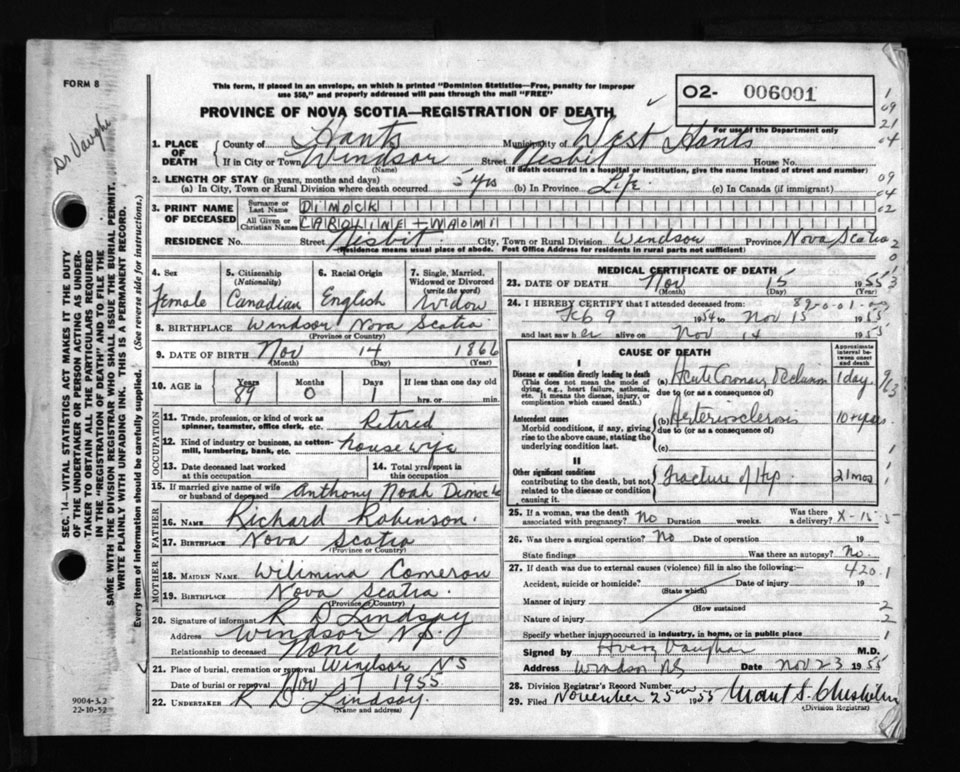 FORM 8
This form, if placed in an envelope, on which is printed "Dominion Statistics—Free, penalty for improper
use $50," and properly addressed will pass through the mail "FREE"
PROVINCE OF NOVA SCOTIA—REGISTRATION OF DEATH
02- 006001
For use of the Department only
Dr Vaughn
1. PLACE OF DEATH
County of Hants Municipality of West Hants
If in City or Town Windsor Street Nesbit House No.
(Name) (If death occurred in a hospital or institution, give its name instead of street and number)
2. LENGTH OF STAY (in years, months and days)
(a) In City, Town or Rural Division where death occurred 5 yrs (b) In Province Life. (c) In Canada (if immigrant)
3. PRINT NAME OF DECEASED
Surname or Last Name DIMOCK
All Given or Christian Names CAROLINE - NAOMI
RESIDENCE No. Street Nesbit City, Town or Rural Division Windsor Province Nova Scotia
(Residence means usual place of abode. Post Office Address for residents in rural parts not sufficient)
4. Sex Female
5. Citizenship (Nationality) Canadian
6. Racial Origin English
7. Single, Married, Widowed or Divorced (write the word) Widow
8. BIRTHPLACE Windsor Nova Scotia
(Province or Country)
9. DATE OF BIRTH Nov 14 1866
(Month) (Day) (Year)
10. AGE in Years 89 Months 0 Days 1 If less than one day old
hrs. or min.
OCCUPATION
11. Trade, profession, or kind of work as spinner, teamster, office clerk, etc. Retired
12. Kind of industry or business, as cotton-mill, lumbering, bank, etc. housewife
13. Date deceased last worked at this occupation
14. Total yrs. spent in this occupation
15. If married give name of wife or husband of deceased Anthony Noah Dimock
FATHER
16. NAME Richard Robinson.
17. BIRTHPLACE Nova Scotia
(Province or Country)
MOTHER
18. MAIDEN NAME. Wilimina Comeron
19. BIRTHPLACE Nova Scotia.
(Province or Country)
20. Signature of informant R D Lindsay
Address Windsor N.S.
Relationship to deceased None
21. Place of burial, cremation or removal Windsor N S
Date of burial or removal Nov 17 1955
22. UNDERTAKER R. D. Lindsay.
(Name and address)
MEDICAL CERTIFICATE OF DEATH
23. DATE OF DEATH Nov 15 1955
(Month) (Day)
24. I HEREBY CERTIFY that I attended deceased from:
Feb 9 1954 to Nov 15 1955
and last saw her alive on Nov 14 1955
CAUSE OF DEATH
Approximate interval between onset and death
I
Disease or condition directly leading to death
(This does not mean the mode of dying, e.g., heart failure, asthenia, etc. It means the disease, injury, or complication which caused death.)
(a) Acute Coronary Occlusion 1 day.
due to (or as a consequence of)
Antecedent causes
Morbid conditions, if any, giving rise to the above cause, stating the underlying condition last.
(b) Arteriosclerosis 10+ yrs.
due to (or as a consequence of)
(c)
II
Other significant conditions
contributing to the death, but not related to the disease or condition causing it.
Fracture of Hip. 21 mos
25. If a woman, was the death associated with pregnancy? No Duration weeks. Was there a delivery?
26. Was there a surgical operation? No Date of operation 19
State findings Was there an autopsy? No.
27. If death was due to external causes (violence) fill in also the following:—
420.1
Accident, suicide or homicide? Date of injury 19
(State which)
Manner of injury
(How sustained)
Nature of injury
Specify whether injury occurred in industry, in home, or in public place
Signed by Avery Vaughan M.D.
Address Windsor NS Date Nov 23 1955
28. Division Registrar's Record Number
29. Filed November 25th 1955
(Division Registrar)
SEC. 14—VITAL STATISTICS ACT MAKES IT THE DUTY
OF THE UNDERTAKER OR PERSON ACTING AS UNDER-
TAKER TO OBTAIN ALL THE PARTICULARS REQUIRED
IN THE "REGISTRATION OF DEATH" AND TO FILE THE
SAME WITH THE DIVISION REGISTRAR WHO SHALL ISSUE THE BURIAL PERMIT.
WRITE PLAINLY WITH UNFADING INK. THIS IS A PERMANENT RECORD.
Every item of Information should be carefully supplied. (See reverse side for instructions.)
9004-3.2
22-10-52